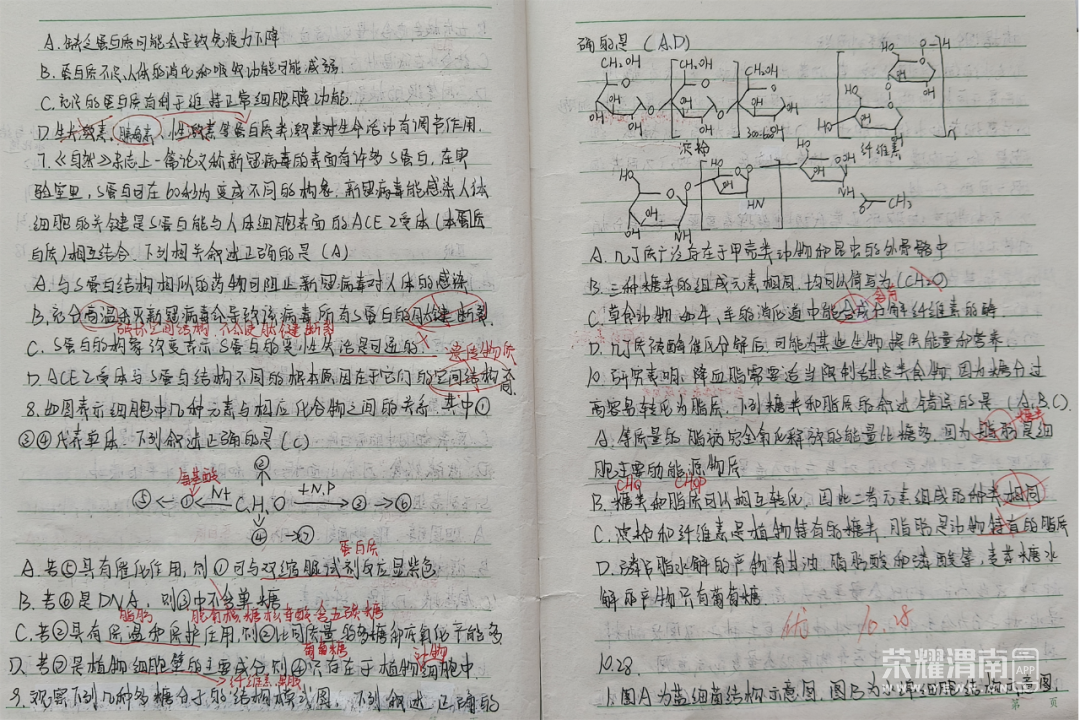 A.缺乏蛋白质可能会导致免疫力下降
B.蛋白质不足,人体的消化和吸收功能可能减弱.
C.充足的蛋白质有利于维持正常细胞膜功能.
D.生长激素、胰岛素、性激素等蛋白质类激素对生命活动有调节作用.
7.《自然》杂志上一篇论文称新冠病毒的表面有许多S蛋白,在实
验室里,S蛋白可在60秒内变成不同的构象.新冠病毒能感染人体
细胞的关键是S蛋白能与人体细胞表面的ACE2受体(本质
白质)相互结合.下列相关叙述正确的是(A)
A.与S蛋白结构相似的药物可阻止新冠病毒对人体的感染
B.充分高温杀灭新冠病毒会导致该病毒所有S蛋白的肽键断裂.
破坏空间结构 不会使肽键断裂
C.S蛋白的构象改变表示S蛋白的变性失活是可逆的.
遗传物质
D.ACE2受体与S蛋白结构不同的根本原因在于它们的空间结构不同.
8.如图表示细胞中几种元素与相应化合物之间的关系.其中①
③④代表单体.下列叙述正确的是(C)
②
氨基酸
⑤←①←+N C,H,O +N,P→③→⑥
④→⑦
蛋白质
A.若⑤具有催化作用,则①可与双缩脲试剂反应显紫色
B.若⑥是DNA,则③中不含单糖
脂肪 脱氧核糖核苷酸含五碳糖
C.若②具有保温和保护作用,则②比同质量的多糖彻底氧化产能多.
葡萄糖 动物
D.若⑦是植物细胞壁的主要成分,则④只存在于植物细胞中
纤维素、果胶
9.观察下列几种多糖分子的结构模式图,下列叙述正确的
确的是(A.D)
CH₂OH CH₂OH CH₂OH
300-600
淀粉
纤维素
HN
NH
NH
CH₃
A.几丁质广泛存在于甲壳类动物和昆虫的外骨骼中
B.三种糖类的组成元素相同,均可以简写为(CH₂O)
C.草食动物如牛、羊的消化道中能合成分解纤维素的酶.
D.几丁质被酶催化分解后,可能为某些生物提供能量和营养
10.研究表明,降血脂需要适当限制甜点类食物,因为糖分过
高容易转化为脂质.下列糖类和脂质的叙述错误的是(A.B.C).
糖类
A.等质量的脂肪完全氧化释放的能量比糖多,因为脂肪是细
胞主要的能源物质
CHO CHOP
B.糖类和脂质可以相互转化,因此二者元素组成的种类相同
C.淀粉和纤维素是植物特有的糖类,脂肪是动物特有的脂质
D.磷脂水解的产物有甘油、脂肪酸和磷酸等,麦芽糖水
解的产物只有葡萄糖
优 10.28
10.28
1.图A为蓝细菌结构示意图,图B为
荣耀渭南APP
第 页